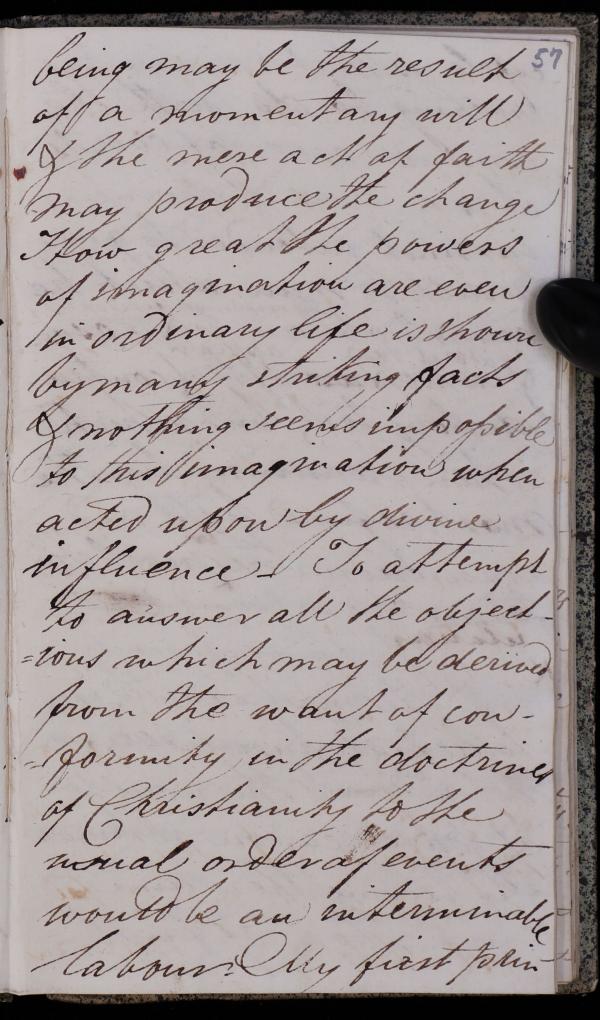 57
being may be the result
of a momentary will
& the mere act of faith
may produce the change
How great the powers
of imagination are even
in ordinary life is shown
by many striking facts
& nothing seems impossible
to this imagination when
acted upon by divine
influence - To attempt
to answer all the object-
=ions which may be derived
from the want of con-
-formity in the doctrines
of Christianity to the
usual order of events
would be an interminable
labour. My first prin-